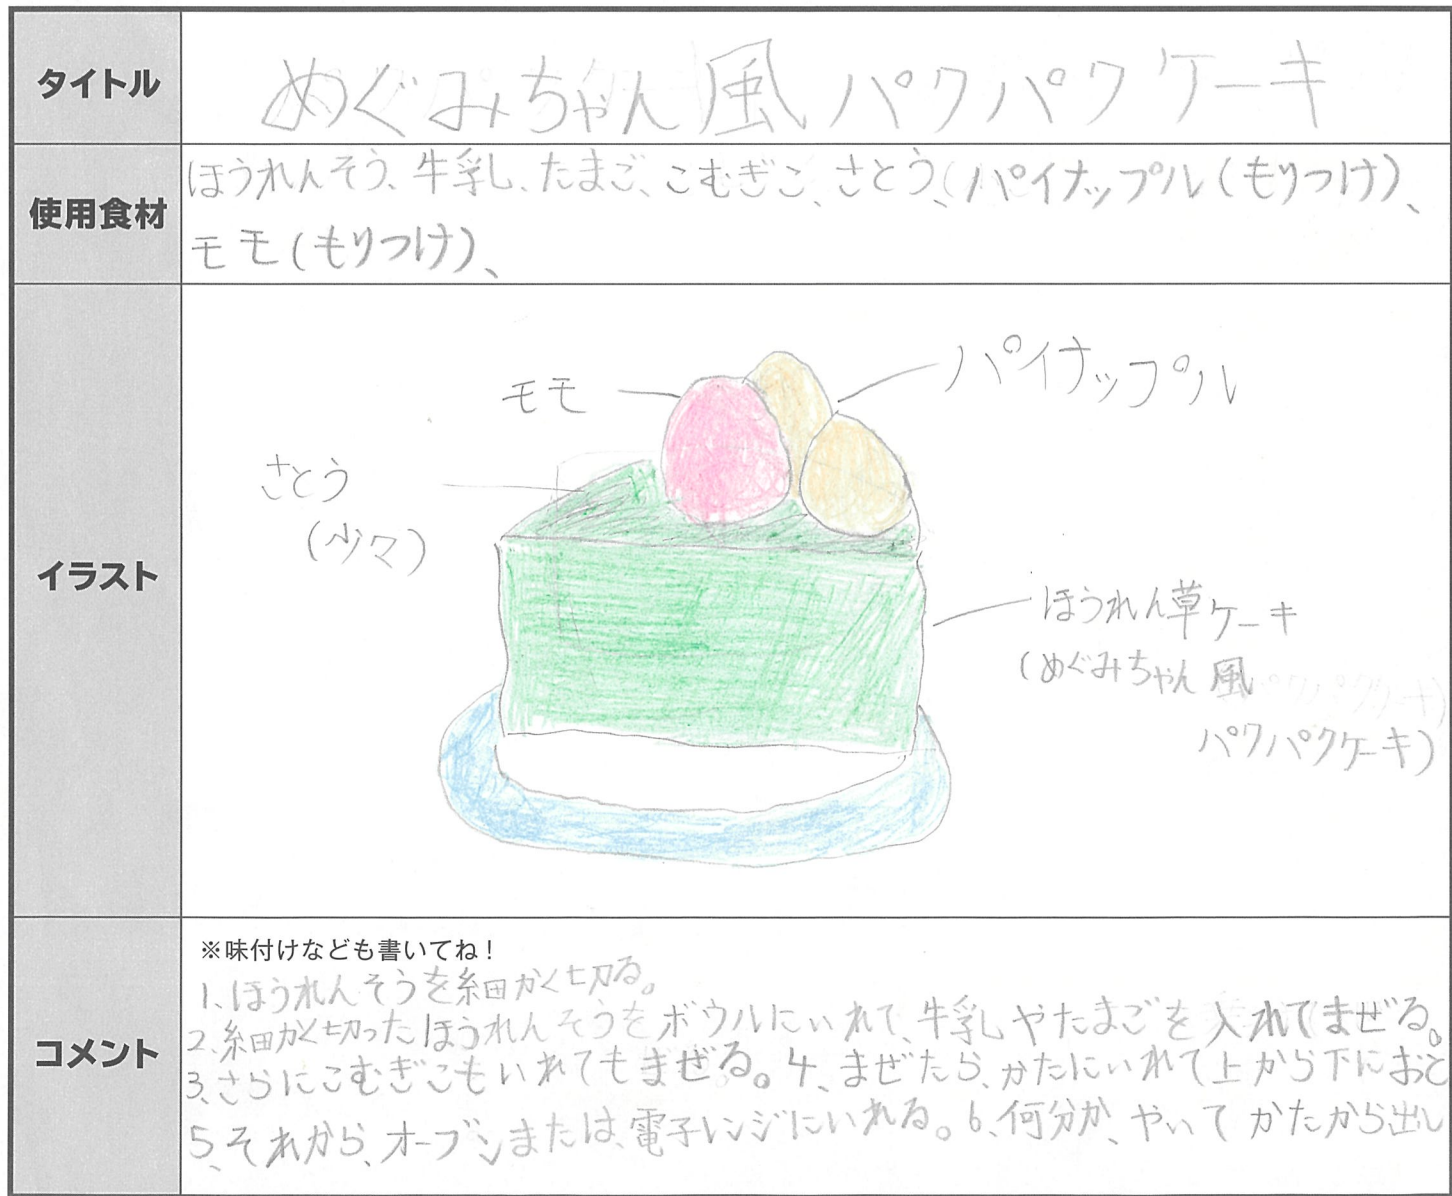 タイトル
めぐみちゃん風パクパクケーキ
使用食材
ほうれんそう、牛乳、たまご、こむぎこ、さとう、(パイナップル(もりつけ)、
モモ(もりつけ)、
イラスト
モモ
パイナップル
さとう
(少々)
ほうれん草ケーキ
(めぐみちゃん風
パクパクケーキ)
コメント
※味付けなども書いてね!
1、ほうれんそうを細かく切る。
2、細かく切ったほうれんそうをボウルにいれて、牛乳やたまごを入れてまぜる。
3、さらにこむぎこもいれてもまぜる。4、まぜたら、かたにいれて上から下におと
5、それから、オーブンまたは、電子レンジにいれる。6、何分か、やいてかたから出し